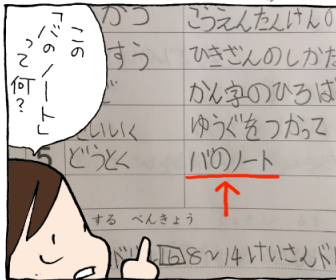 この
「バのノート」
って
何?
かつ こうえんたんけん
すう ひきざんのしかた
かん字のひろば
いいく ゆうぐをつかって
5 どうとく バのノート
する べんきょう
8~14けいさんド